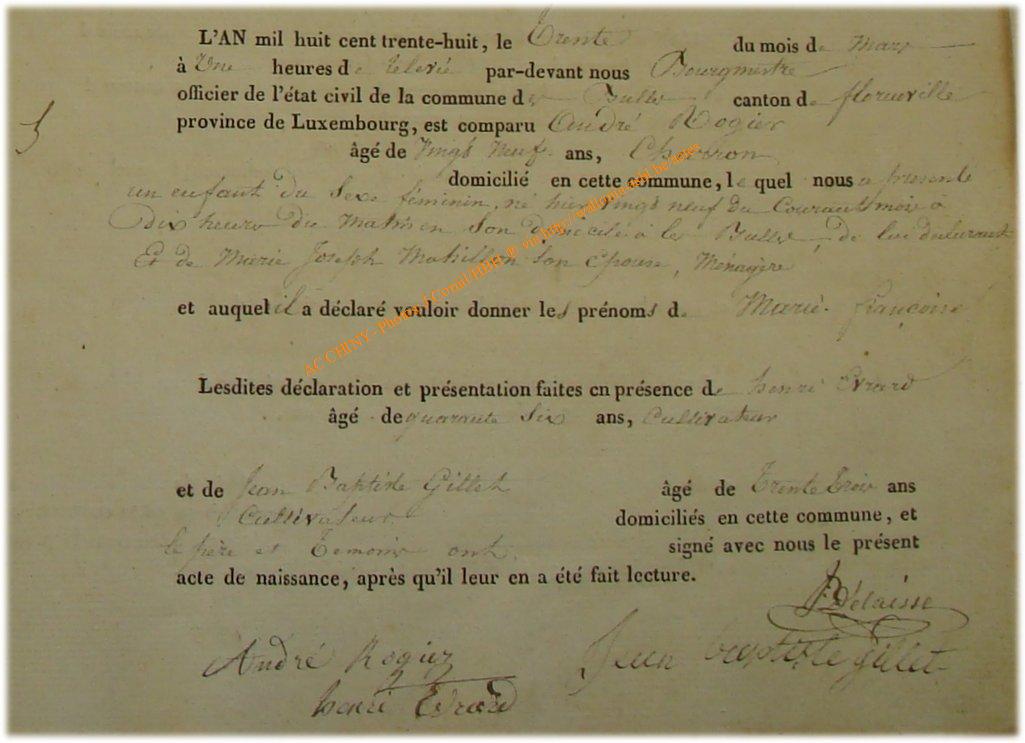 L'AN mil huit cent trente-huit, le Trente du mois de Mars
à Une heures de relevé par-devant nous Bourgmestre
officier de l'état civil de la commune de Bulles canton de florenville
province de Luxembourg, est comparu André Rogier
âgé de vingt Neuf ans, Charron
domicilié en cette commune, lequel nous a présenté
un enfant du Sexe féminin, né hier vingt neuf du Courant mois à
Dix heures du Matin en Son domicile à les Bulles, de lui déclarant
Et de Marie Joseph Mahillon Son Epouse, Ménagère
et auquel il a déclaré vouloir donner les prénoms de Marie françoise
Lesdites déclaration et présentation faites en présence de henri Evrard
âgé de quarante Six ans, Cultivateur
et de Jean Baptiste Gillet âgé de Trente Trois ans
Cultivateur domiciliés en cette commune, et
le père et Temoins ont signé avec nous le présent
acte de naissance, après qu'il leur en a été fait lecture.
André Rogier Jean baptiste gillet
henri Evrard
AC CHINY - Photos J.Cornil-HBH.gr via http://wallonia-asbl.be/actes